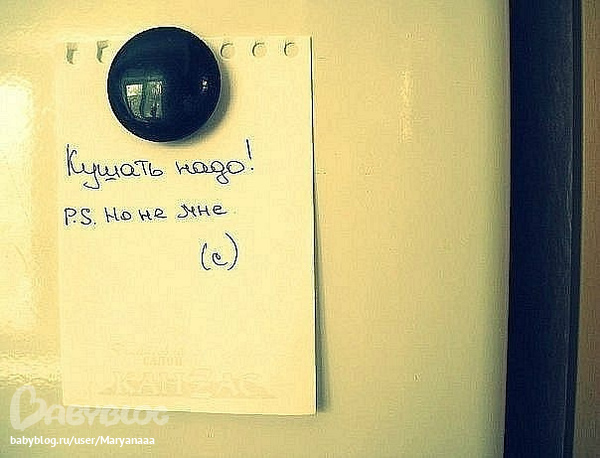 Кушать надо!
P.S. Но не мне
(с)
салон
КАНЗАС
BABYBLOG
babyblog.ru/user/Maryanaaa